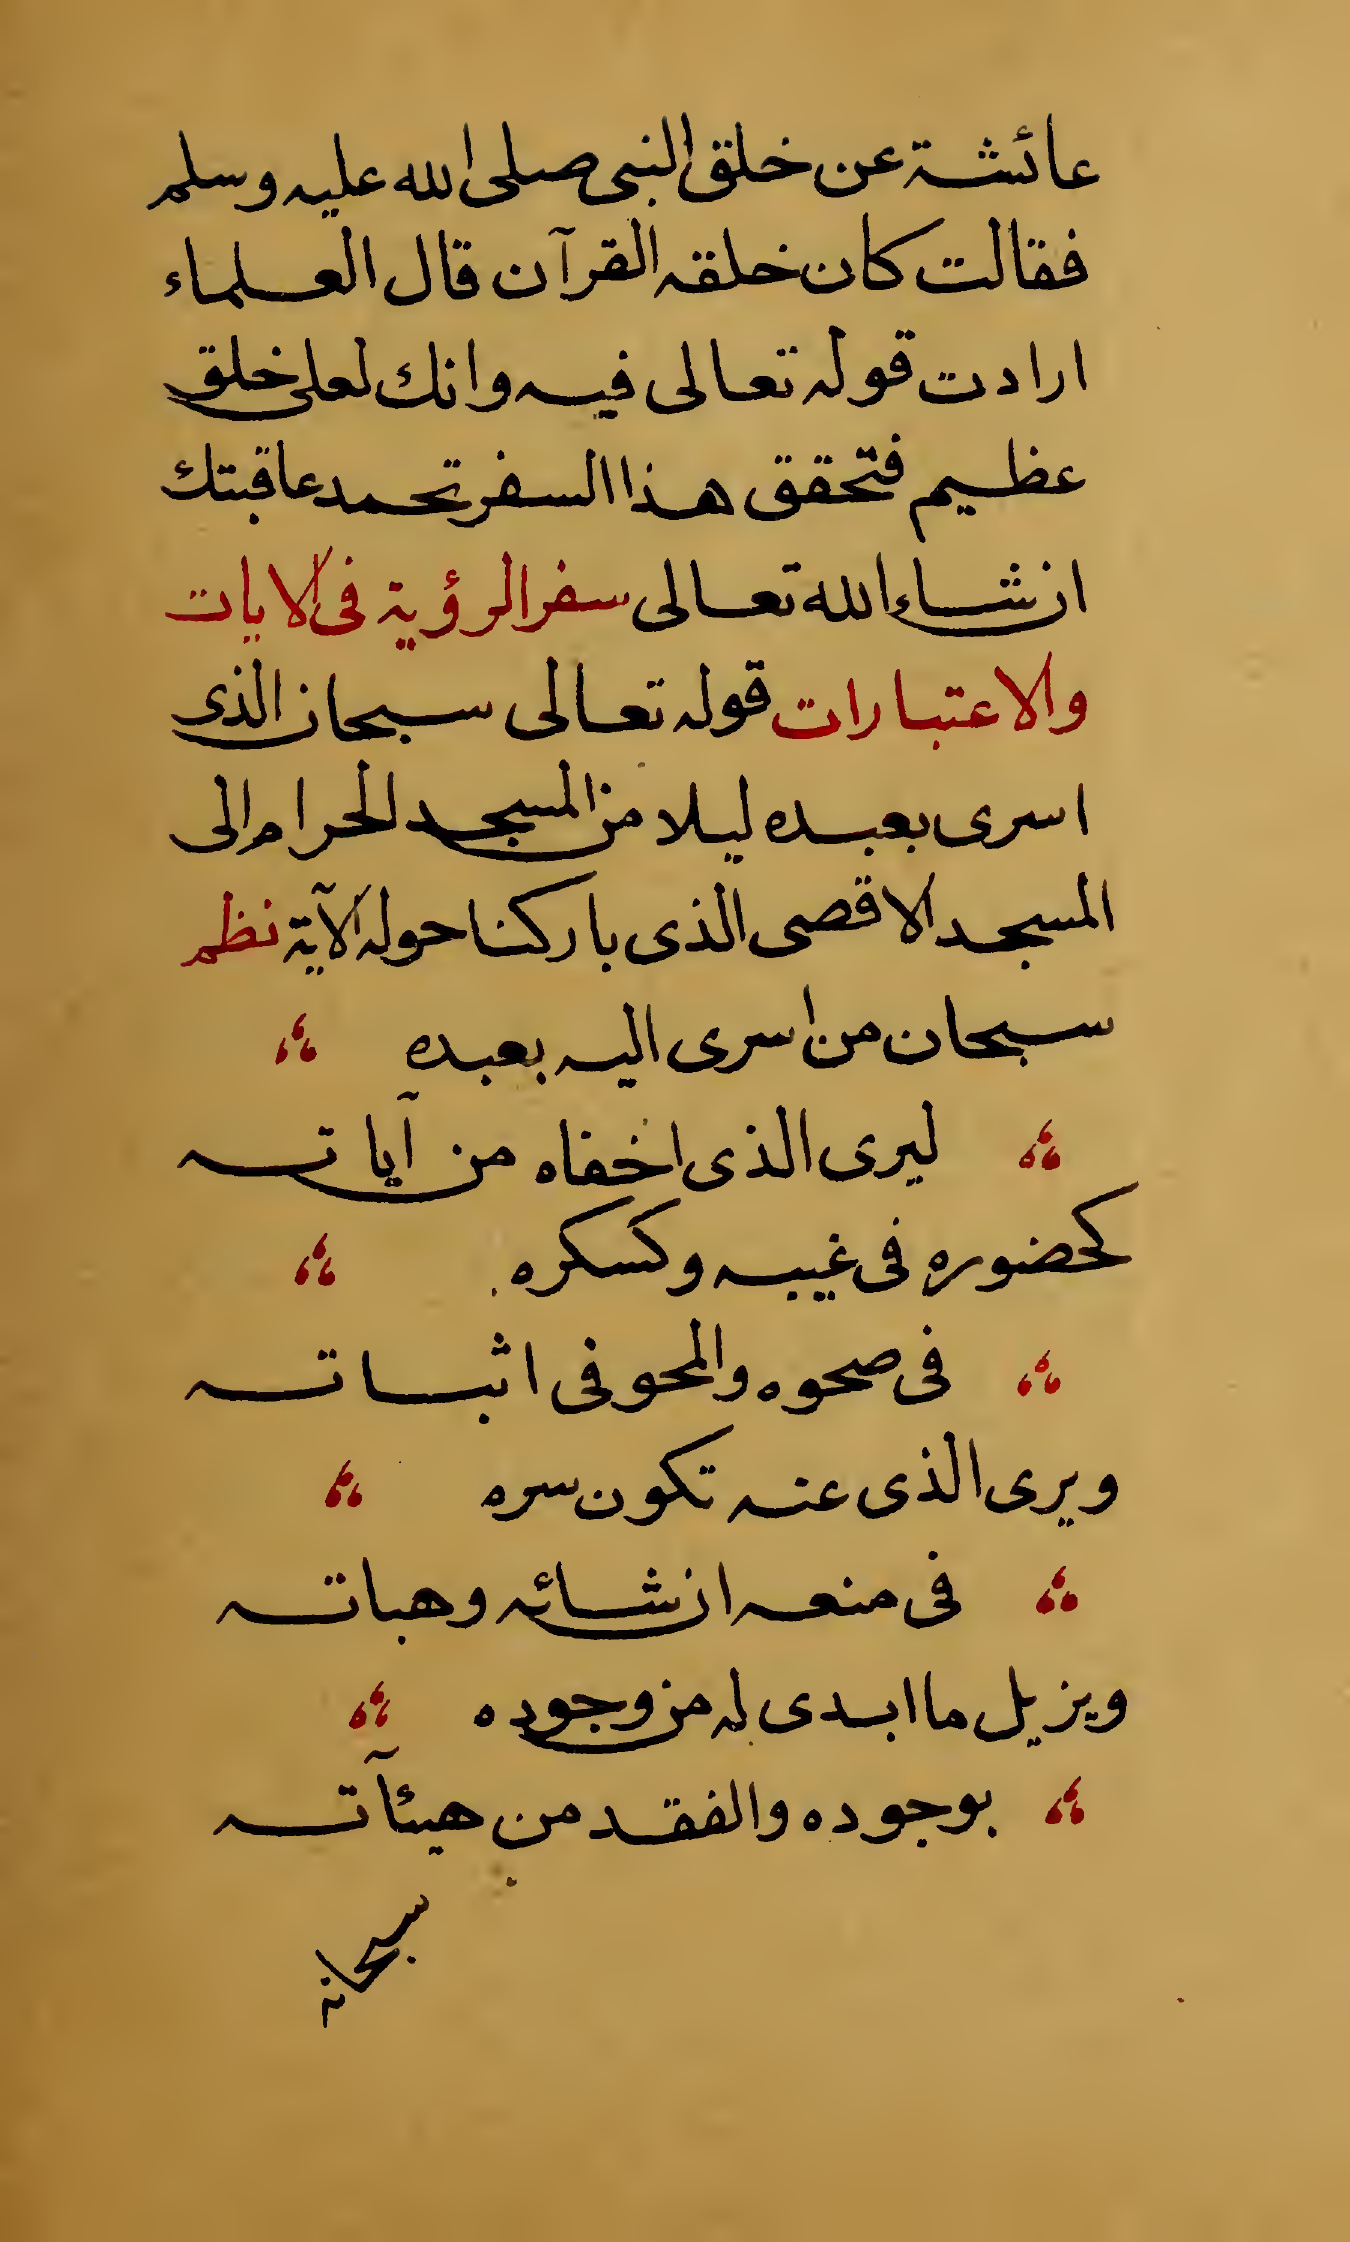 عائشة عن خلق النبى صلى الله عليه وسلم
فقالت كان خلقه القرآن قال العلماء
ارادت قوله تعالى فيه وانك لعلى خلق
عظيم فتحقق هذا السفر تحمد عاقبتك
ان شاء الله تعالى سفر الرؤية فى الايات
والاعتبارات قوله تعالى سبحان الذى
اسرى بعبده ليلا من المسجد الحرام الى
المسجد الاقصى الذى باركنا حوله الآية نظم
سبحان من اسرى اليه بعبده
ليرى الذى اخفاه من آياته
كحضوره فى غيبه وكسكره
فى صحوه والمحو فى اثباته
ويرى الذى عنه تكون سره
فى منعه ان شائه وهباته
ويزيل ما ابدى له من وجوده
بوجوده والفقد من هيئآته
سبحانه